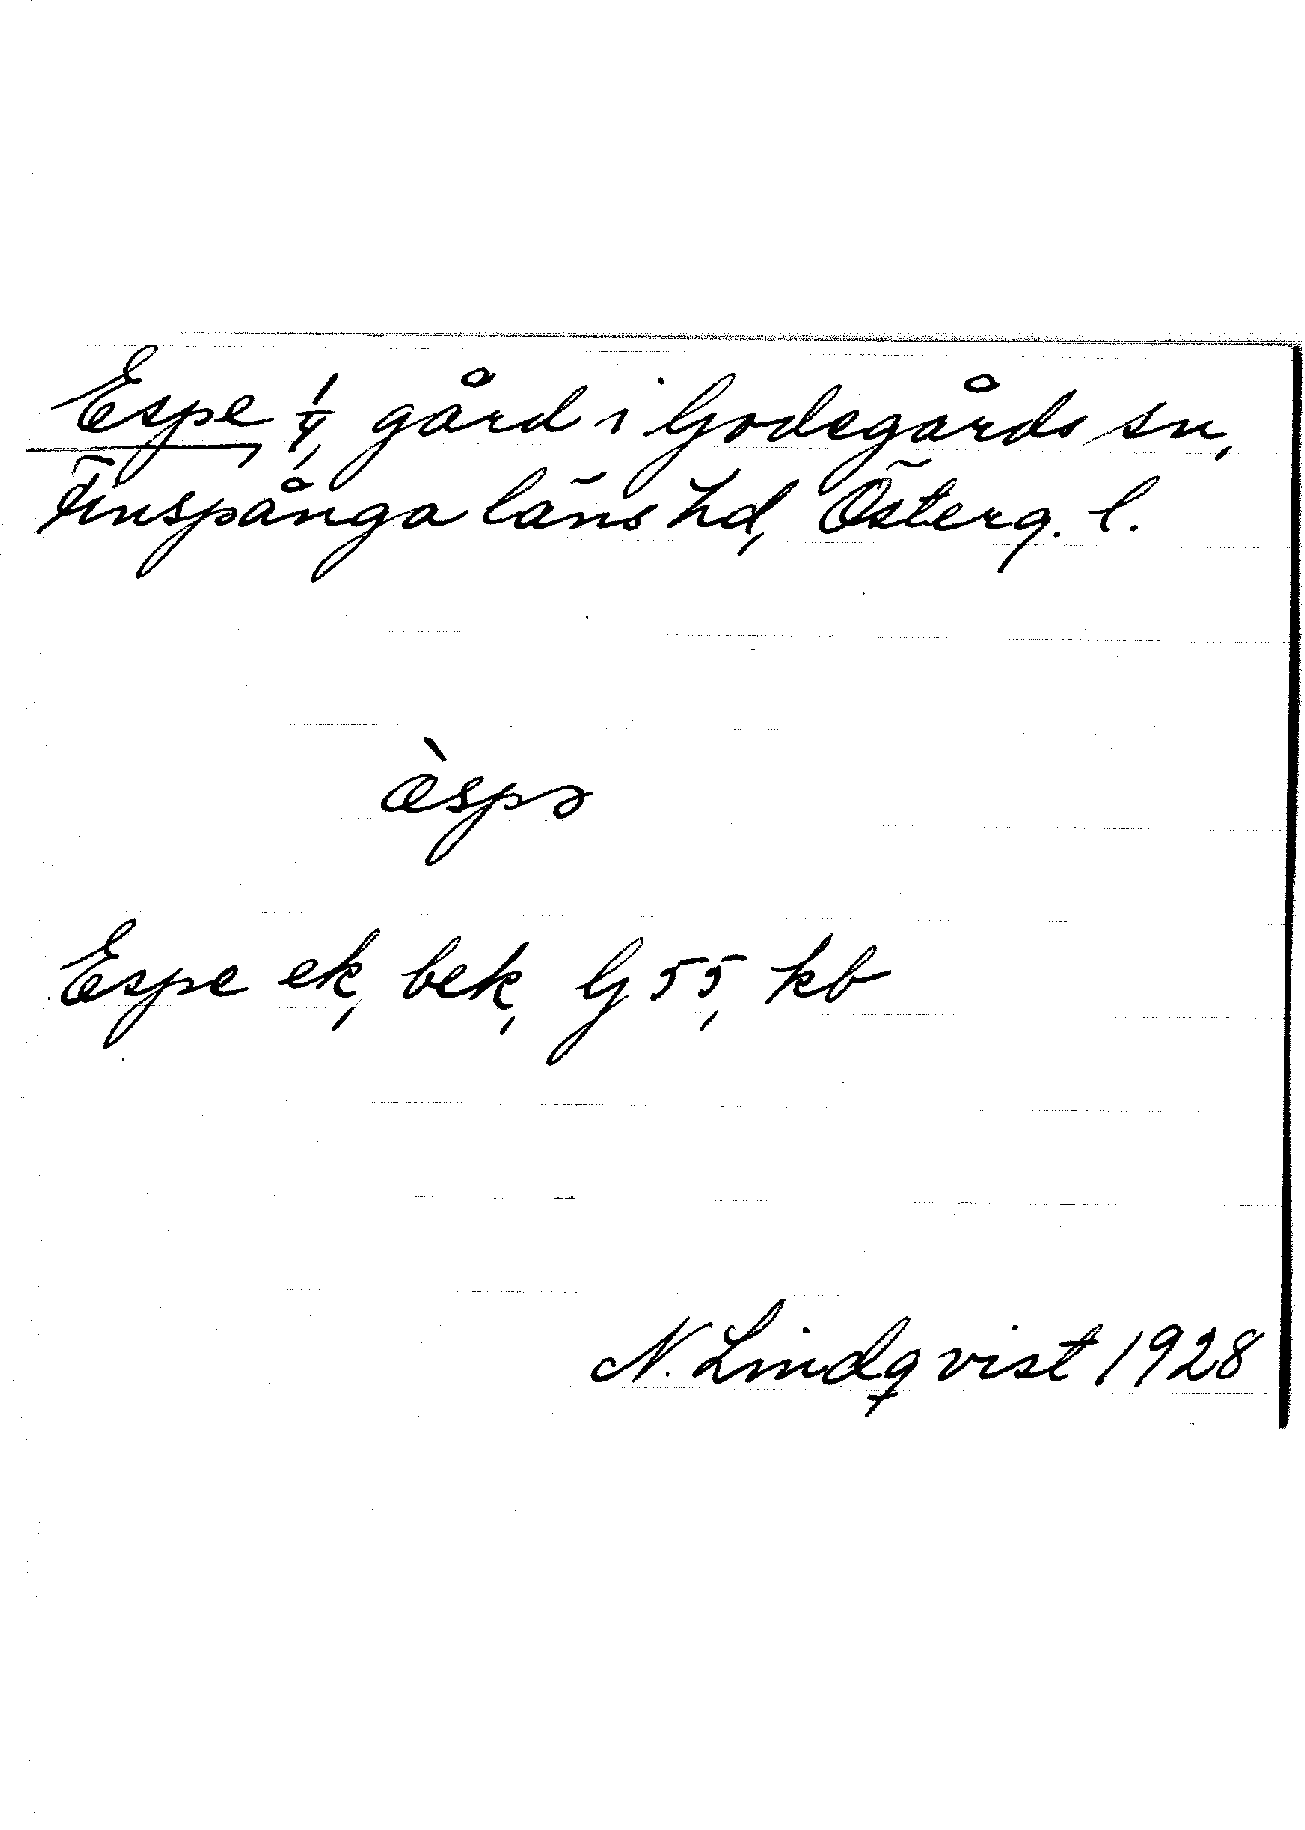 Espe 1/4, gård i Godegårds sn,
Finspånga läns hd, Österg. l.
æ̀spə
Espe ek, bek, G 55, kb
N. Lindqvist 1928